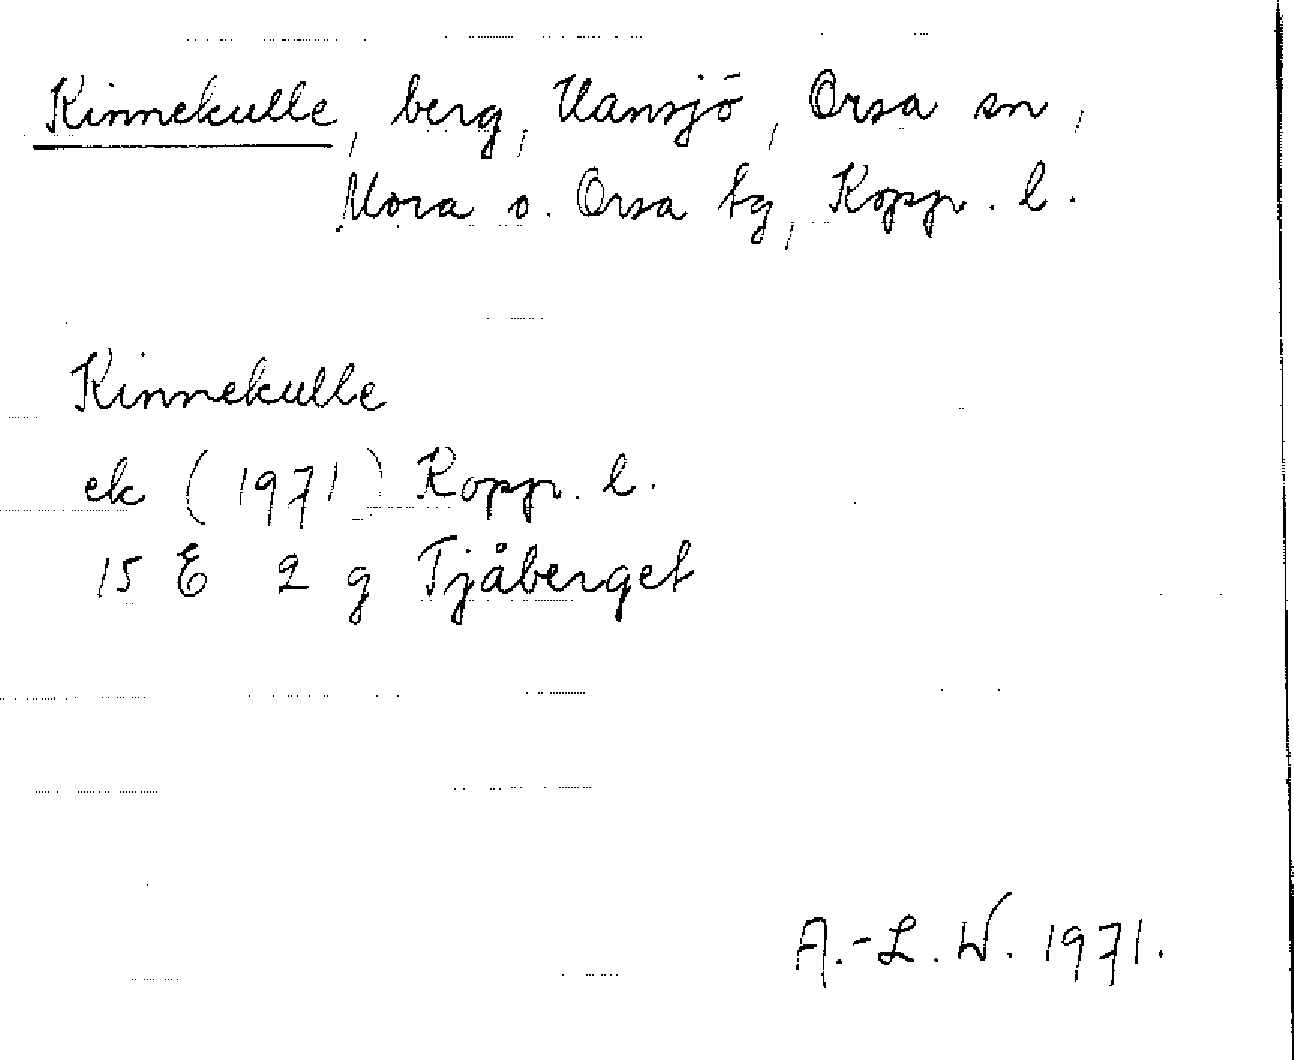 Kinnekulle, berg, Vansjö, Orsa sn,
Mora o. Orsa tg, Kopp. l.
Kinnekulle
ek (1971) Kopp. l.
15 E 2 g Tjåberget
A.-L. W. 1971.